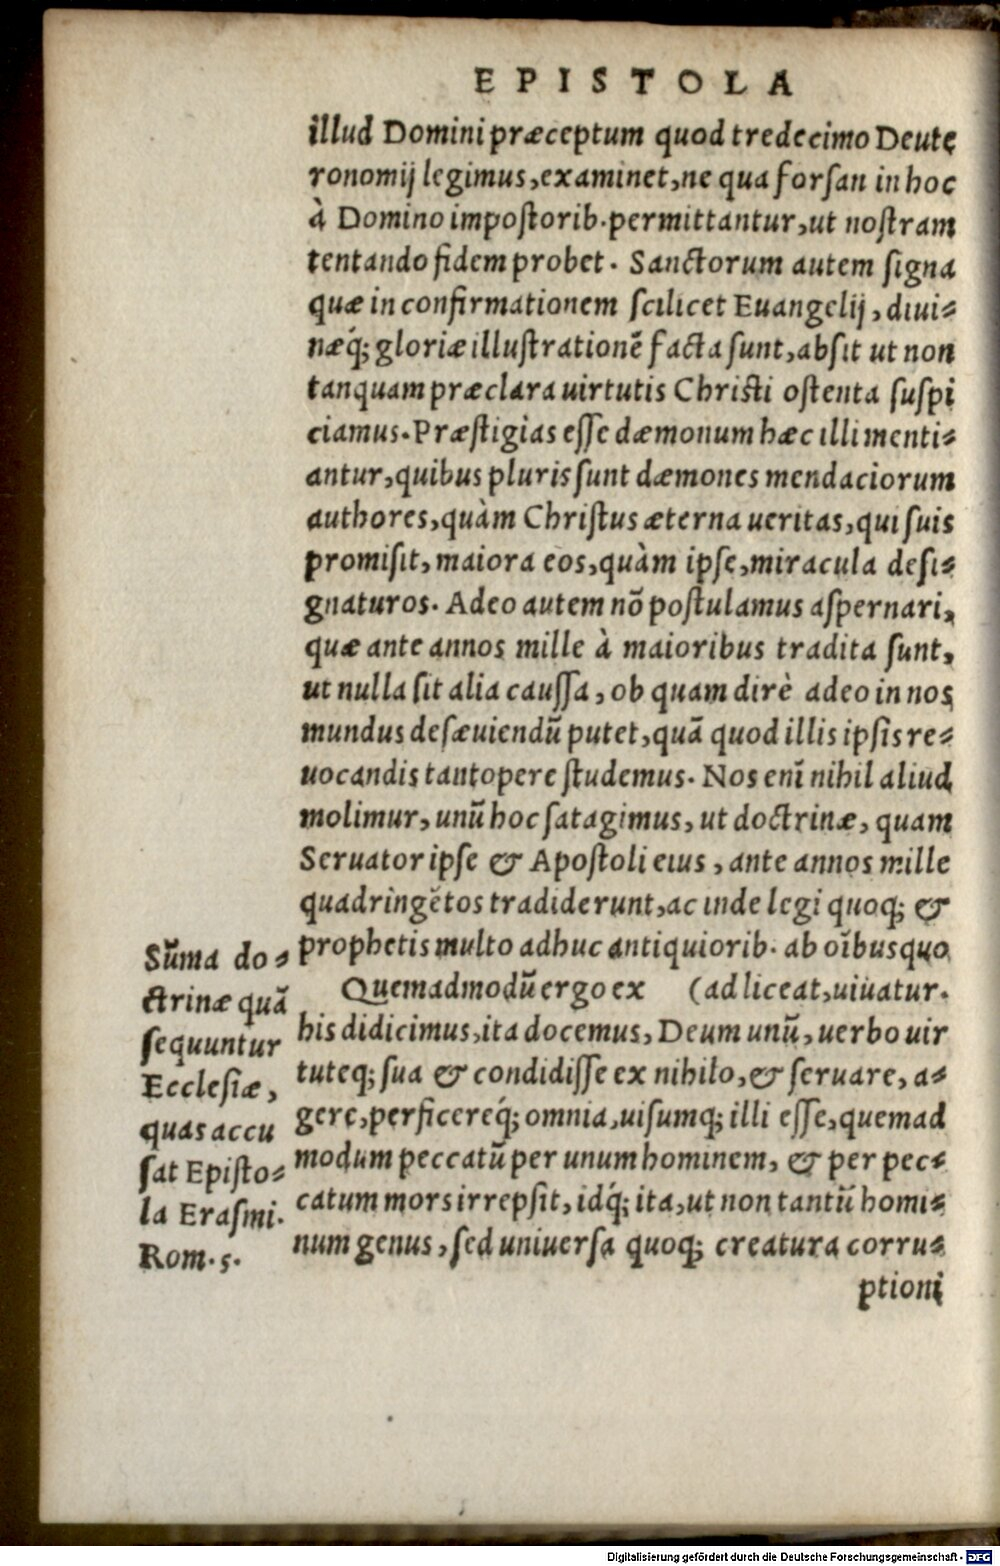 EPISTOLA
illud Domini præceptum quod tredecimo Deute
ronomij legimus, examinet, ne qua forſan in hoc
à Domino impoſtorib. permittantur, ut noſtram
tentando fidem probet. Sanctorum autem ſigna
quæ in confirmationem ſcilicet Euangelij, diui-
næq́; gloriæ illuſtrationẽ facta ſunt, abſit ut non
tanquam præclara uirtutis Chriſti oſtenta ſuſpi
ciamus. Præſtigias eſſe dæmonum hæc illi menti-
antur, quibus pluris ſunt dæmones mendaciorum
authores, quàm Chriſtus æterna ueritas, qui ſuis
promiſit, maiora eos, quàm ipſe, miracula deſi-
gnaturos. Adeo autem nõ poſtulamus aſpernari,
quæ ante annos mille à maioribus tradita ſunt,
ut nulla ſit alia cauſſa, ob quam dirè adeo in nos
mundus deſæuiendũ putet, quã quod illis ipſis re-
uocandis tantopere ſtudemus. Nos enĩ nihil aliud
molimur, unũ hoc ſatagimus, ut doctrinæ, quam
Seruator ipſe & Apoſtoli eius, ante annos mille
quadringẽtos tradiderunt, ac inde legi quoq; &
prophetis multo adhuc antiquiorib. ab oĩbus quo
(ad liceat, uiuatur.
Quemadmodũ ergo ex
his didicimus, ita docemus, Deum unũ, uerbo uir
tuteq; ſua & condidiſſe ex nihilo, & ſeruare, a-
gere, perficereq́; omnia, uiſumq; illi eſſe, quemad
modum peccatũ per unum hominem, & per pec-
catum mors irrepſit, idq́; ita, ut non tantũ homi-
num genus, ſed uniuerſa quoq; creatura corru-
ptioni
Sũma do-
ctrinæ quã
ſequuntur
Eccleſiæ,
quas accu
ſat Epiſto-
la Eraſmi.
Rom. 5.
Digitalisierung gefördert durch die Deutsche Forschungsgemeinschaft - DFG